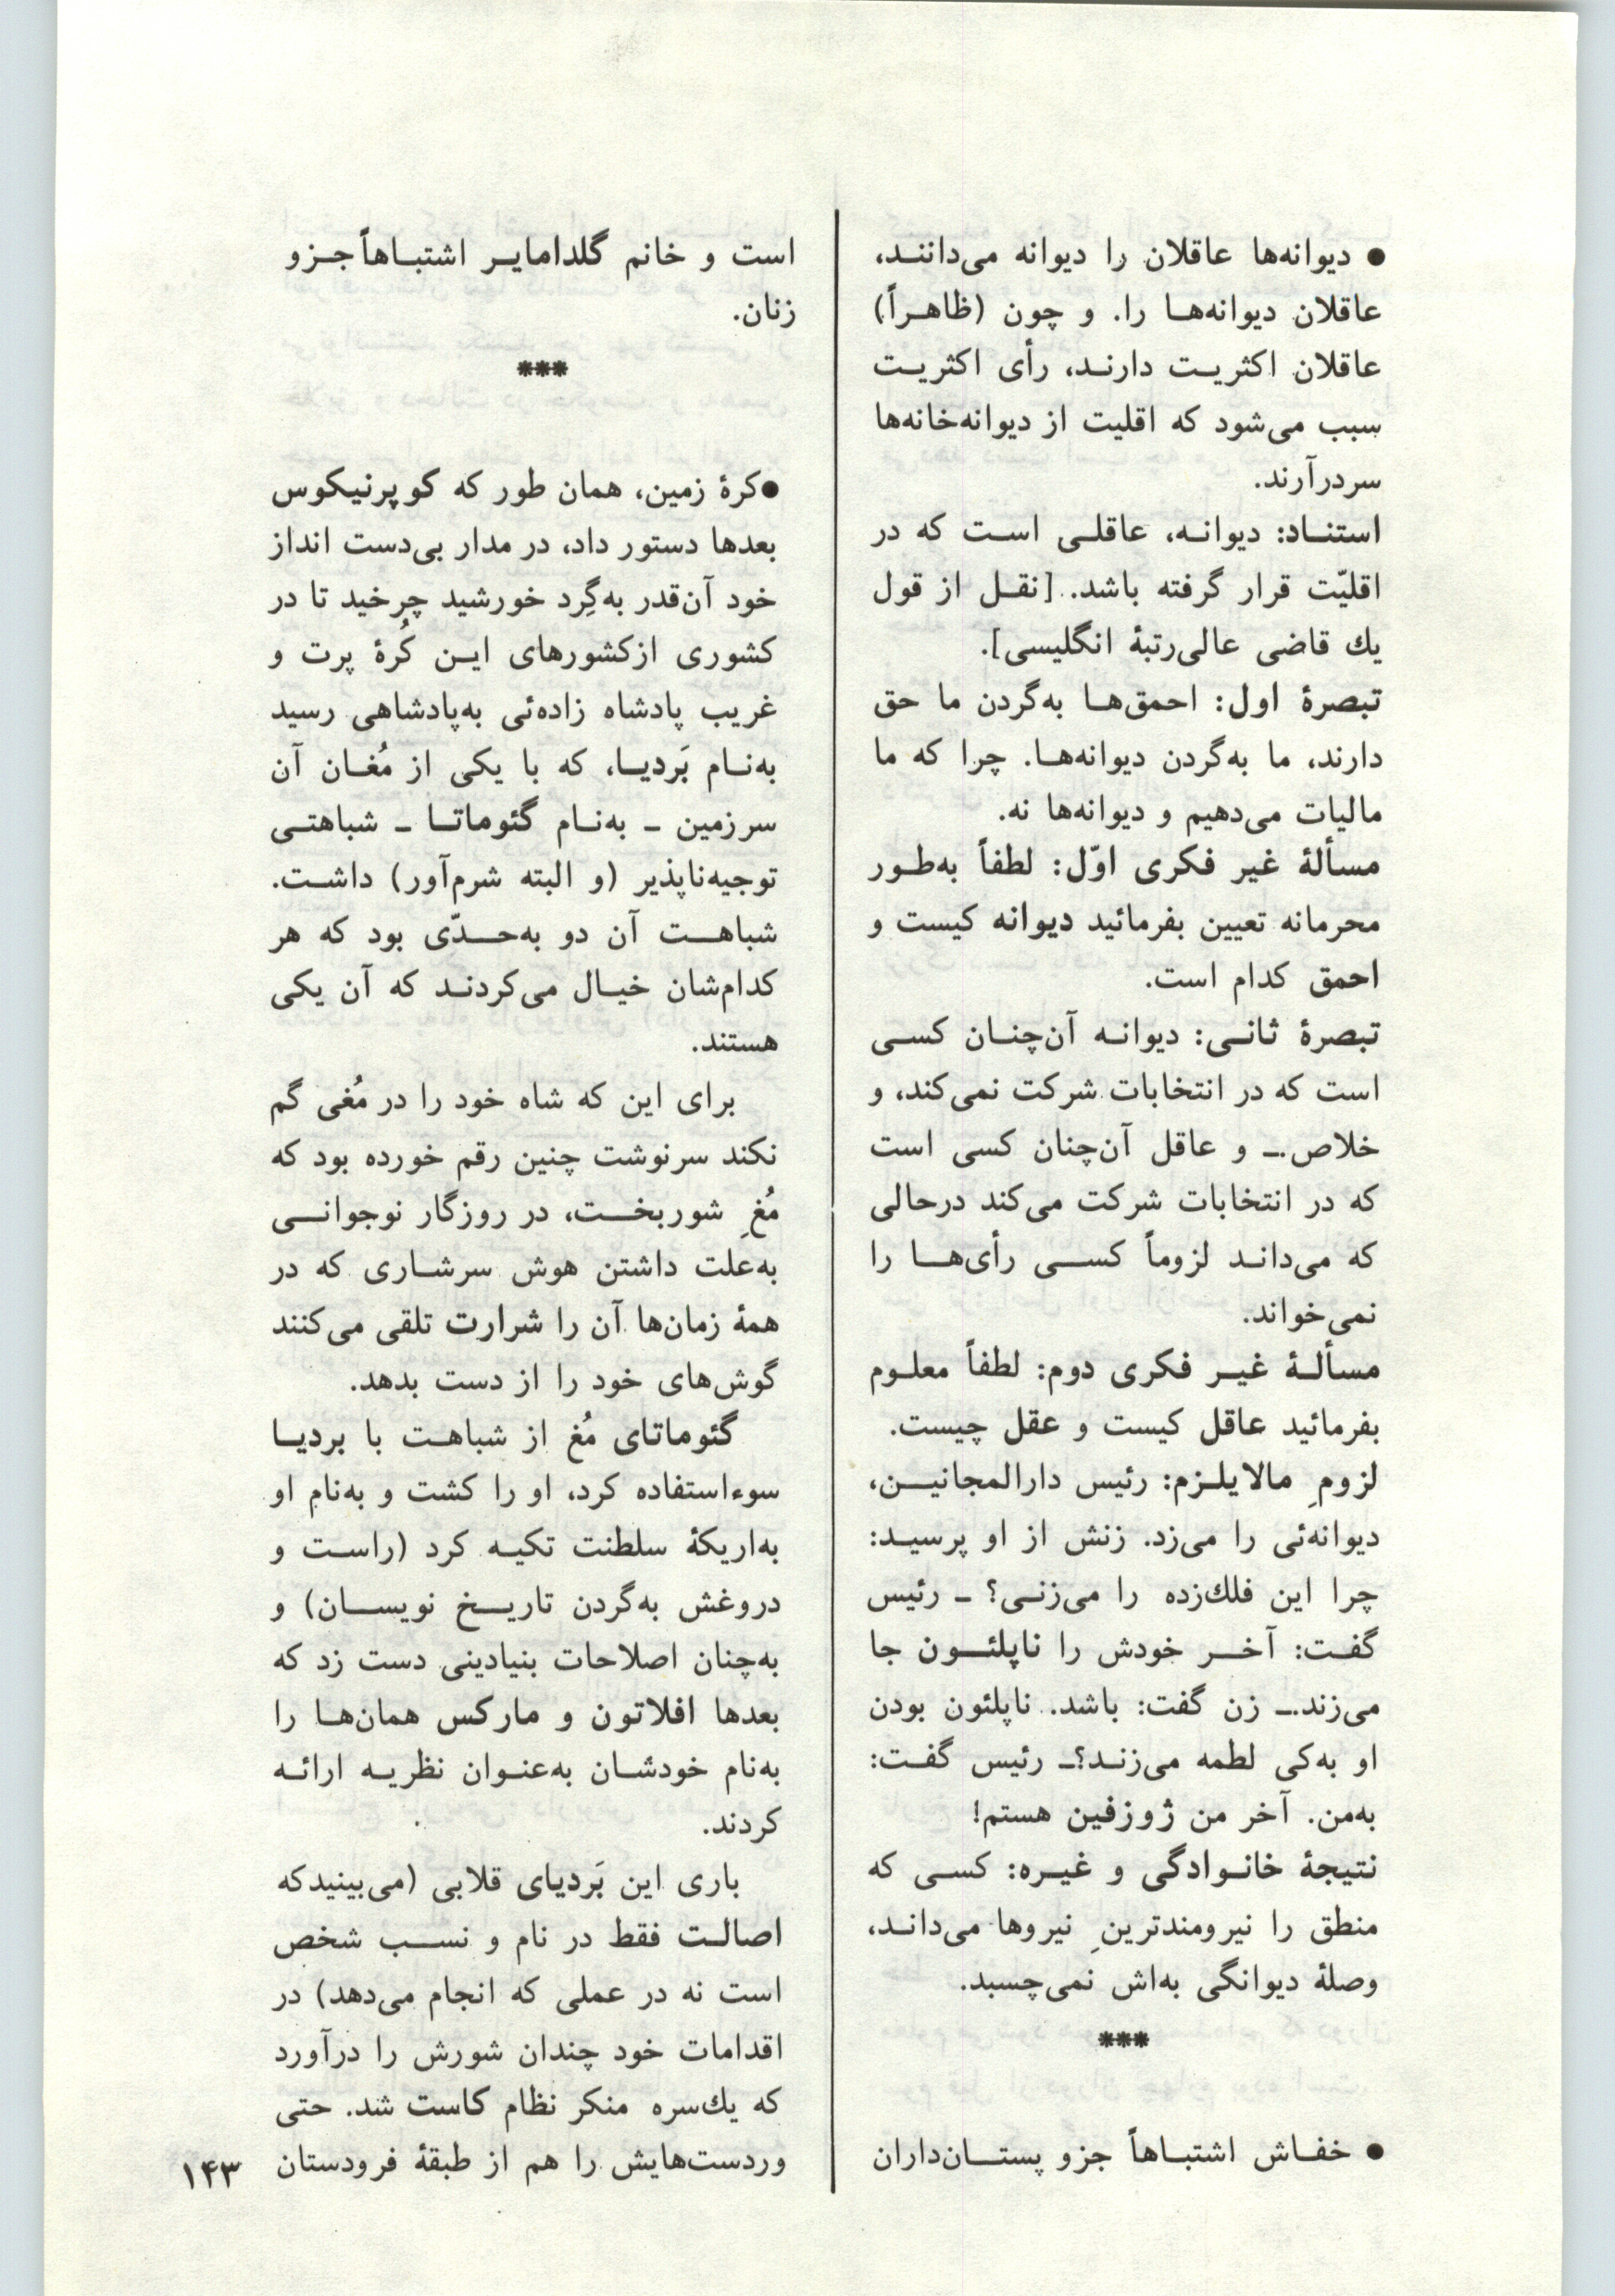 ● دیوانه‌ها عاقلان را دیوانه می‌دانند،
عاقلان دیوانه‌ها را. و چون (ظاهراً)
عاقلان اکثریت دارند، رأی اکثریت
سبب می‌شود که اقلیت از دیوانه‌خانه‌ها
سردرآرند.
استناد: دیوانه، عاقلی است که در
اقلیّت قرار گرفته باشد. [نقل از قول
یك قاضی عالی‌رتبهٔ انگلیسی].
تبصرهٔ اول: احمق‌ها به‌گردن ما حق
دارند، ما به‌گردن دیوانه‌ها. چرا که ما
مالیات می‌دهیم و دیوانه‌ها نه.
مسألهٔ غیر فکری اوّل: لطفاً به‌طور
محرمانه تعیین بفرمائید دیوانه کیست و
احمق کدام است.
تبصرهٔ ثانی: دیوانه آن‌چنان کسی
است که در انتخابات شرکت نمی‌کند، و
خلاص.ـ و عاقل آن‌چنان کسی است
که در انتخابات شرکت می‌کند درحالی
که می‌داند لزوماً کسی رأی‌ها را
نمی‌خواند.
مسألهٔ غیر فکری دوم: لطفاً معلوم
بفرمائید عاقل کیست و عقل چیست.
لزومِ مالایلزم: رئیس دارالمجانین،
دیوانه‌ئی را می‌زد. زنش از او پرسید:
چرا این فلك‌زده را می‌زنی؟ ـ رئیس
گفت: آخر خودش را ناپلئون جا
می‌زند.ـ زن گفت: باشد. ناپلئون بودن
او به‌کی لطمه می‌زند؟ـ رئیس گفت:
به‌من. آخر من ژوزفین هستم!
نتیجهٔ خانوادگی و غیره: کسی که
منطق را نیرومندترینِ نیروها می‌داند،
وصلهٔ دیوانگی به‌اش نمی‌چسبد.
***
● خفاش اشتباهاً جزو پستان‌داران
است و خانم گلدامایر اشتباهاً جزو
زنان.
***
●کرهٔ زمین، همان طور که کوپرنیکوس
بعدها دستور داد، در مدار بی‌دست انداز
خود آن‌قدر به‌گِرد خورشید چرخید تا در
کشوری ازکشورهای این کُرهٔ پرت و
غریب پادشاه زاده‌ئی به‌پادشاهی رسید
به‌نام بَردیا، که با یکی از مُغان آن
سرزمین ـ به‌نام گئوماتا ـ شباهتی
توجیه‌ناپذیر (و البته شرم‌آور) داشت.
شباهت آن دو به‌حدّی بود که هر
کدام‌شان خیال می‌کردند که آن یکی
هستند.
برای این که شاه خود را در مُغی گم
نکند سرنوشت چنین رقم خورده بود که
مُغِ شوربخت، در روزگار نوجوانی
به‌علت داشتن هوش سرشاری که در
همهٔ زمان‌ها آن را شرارت تلقی می‌کنند
گوش‌های خود را از دست بدهد.
گئوماتای مُغ از شباهت با بردیا
سوءاستفاده کرد، او را کشت و به‌نامِ او
به‌اریکهٔ سلطنت تکیه کرد (راست و
دروغش به‌گردن تاریخ نویسان) و
به‌چنان اصلاحات بنیادینی دست زد که
بعدها افلاتون و مارکس همان‌ها را
به‌نام خودشان به‌عنوان نظریه ارائه
کردند.
باری این بَردیای قلابی (می‌بینیدکه
اصالت فقط در نام و نسب شخص
است نه در عملی که انجام می‌دهد) در
اقدامات خود چندان شورش را درآورد
که یك‌سره منکر نظام کاست شد. حتی
وردست‌هایش را هم از طبقهٔ فرودستان
۱۴۳